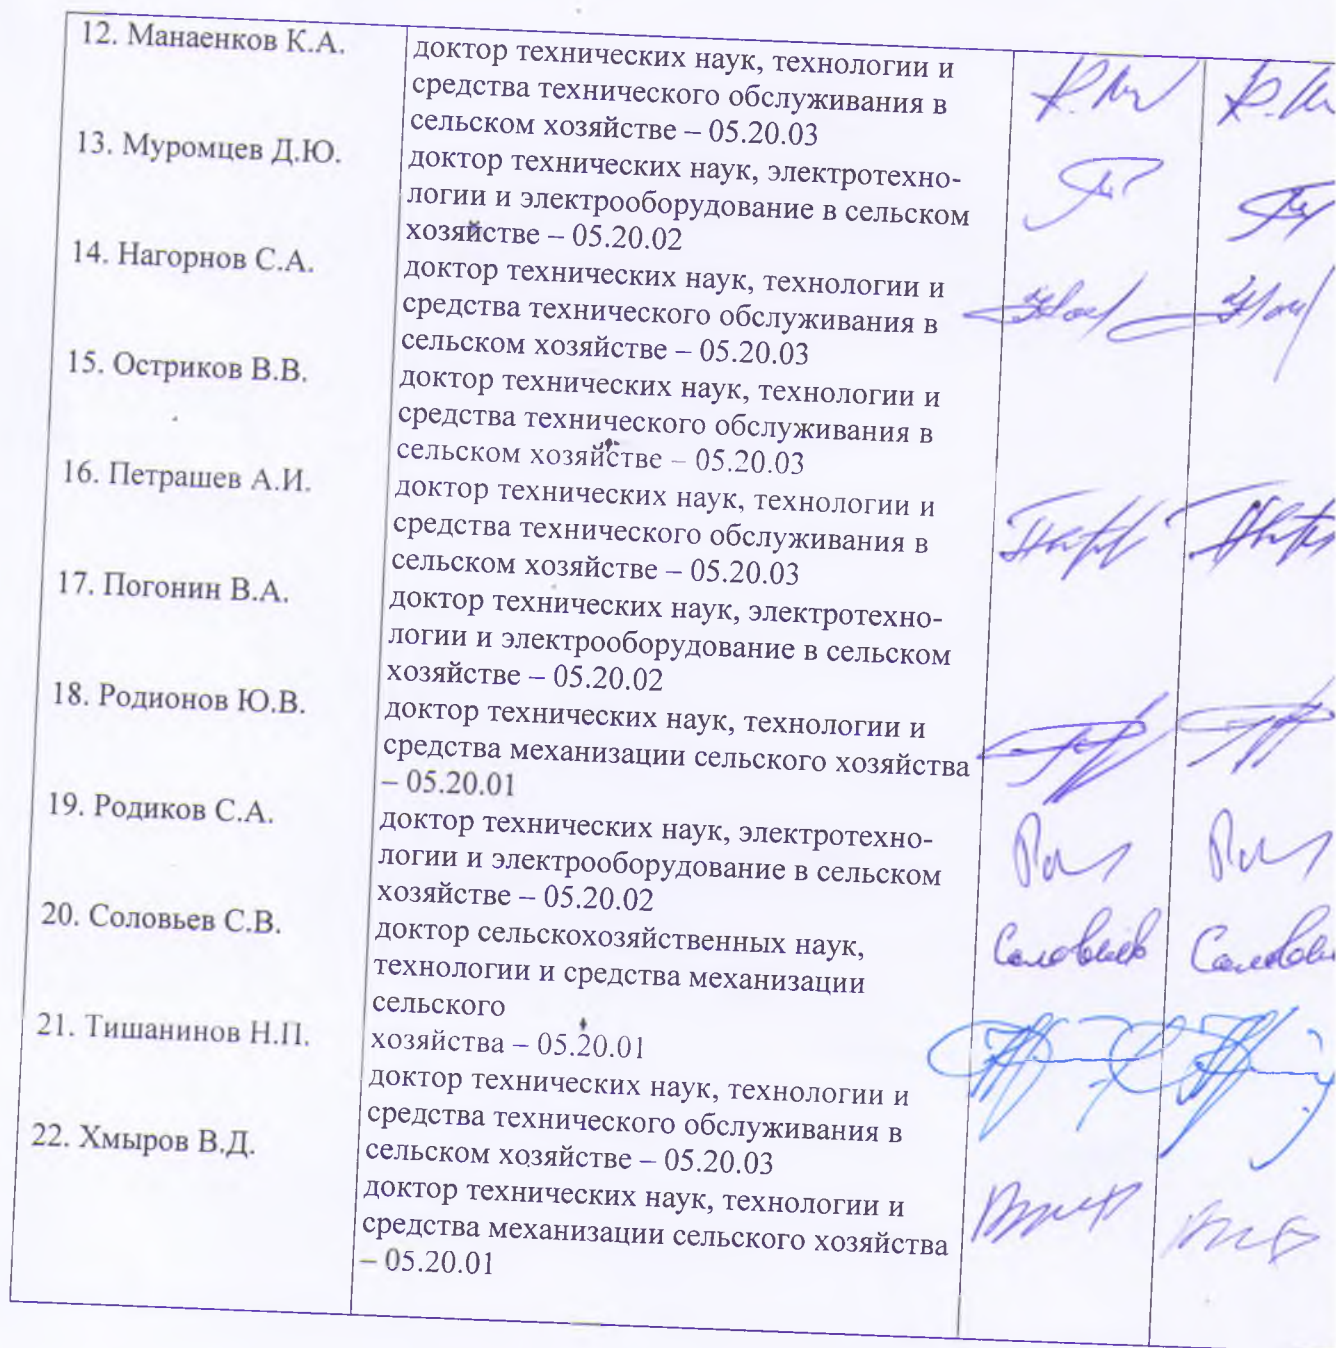 12. Манаенков К.А.
доктор технических наук, технологии и
средства технического обслуживания в
сельском хозяйстве – 05.20.03
13. Муромцев Д.Ю.
доктор технических наук, электротехно-
логии и электрооборудование в сельском
хозяйстве – 05.20.02
14. Нагорнов С.А.
доктор технических наук, технологии и
средства технического обслуживания в
сельском хозяйстве – 05.20.03
15. Остриков В.В.
доктор технических наук, технологии и
средства технического обслуживания в
сельском хозяйстве – 05.20.03
16. Петрашев А.И.
доктор технических наук, технологии и
средства технического обслуживания в
сельском хозяйстве – 05.20.03
17. Погонин В.А.
доктор технических наук, электротехно-
логии и электрооборудование в сельском
хозяйстве – 05.20.02
18. Родионов Ю.В.
доктор технических наук, технологии и
средства механизации сельского хозяйства
– 05.20.01
19. Родиков С.А.
доктор технических наук, электротехно-
логии и электрооборудование в сельском
хозяйстве – 05.20.02
20. Соловьев С.В.
доктор сельскохозяйственных наук,
технологии и средства механизации
сельского
хозяйства – 05.20.01
21. Тишанинов Н.П.
доктор технических наук, технологии и
средства технического обслуживания в
сельском хозяйстве – 05.20.03
22. Хмыров В.Д.
доктор технических наук, технологии и
средства механизации сельского хозяйства
– 05.20.01